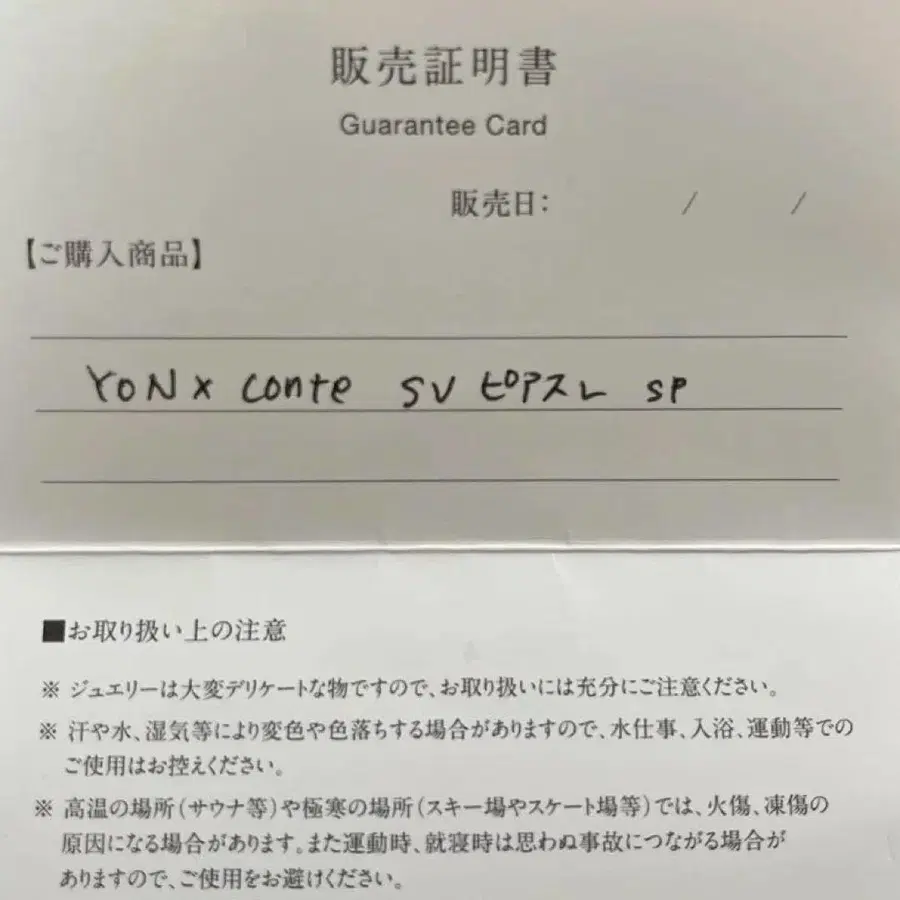 販売証明書
Guarantee Card
販売日: / /
【ご購入商品】
YONx conte SV ピアスL SP
■お取り扱い上の注意
※ ジュエリーは大変デリケートな物ですので、お取り扱いには充分にご注意ください。
※ 汗や水、湿気等により変色や色落ちする場合がありますので、水仕事、入浴、運動等での
ご使用はお控えください。
※ 高温の場所(サウナ等)や極寒の場所(スキー場やスケート場等)では、火傷、凍傷の
原因になる場合があります。また運動時、就寝時は思わぬ事故につながる場合が
ありますので、ご使用をお避けください。